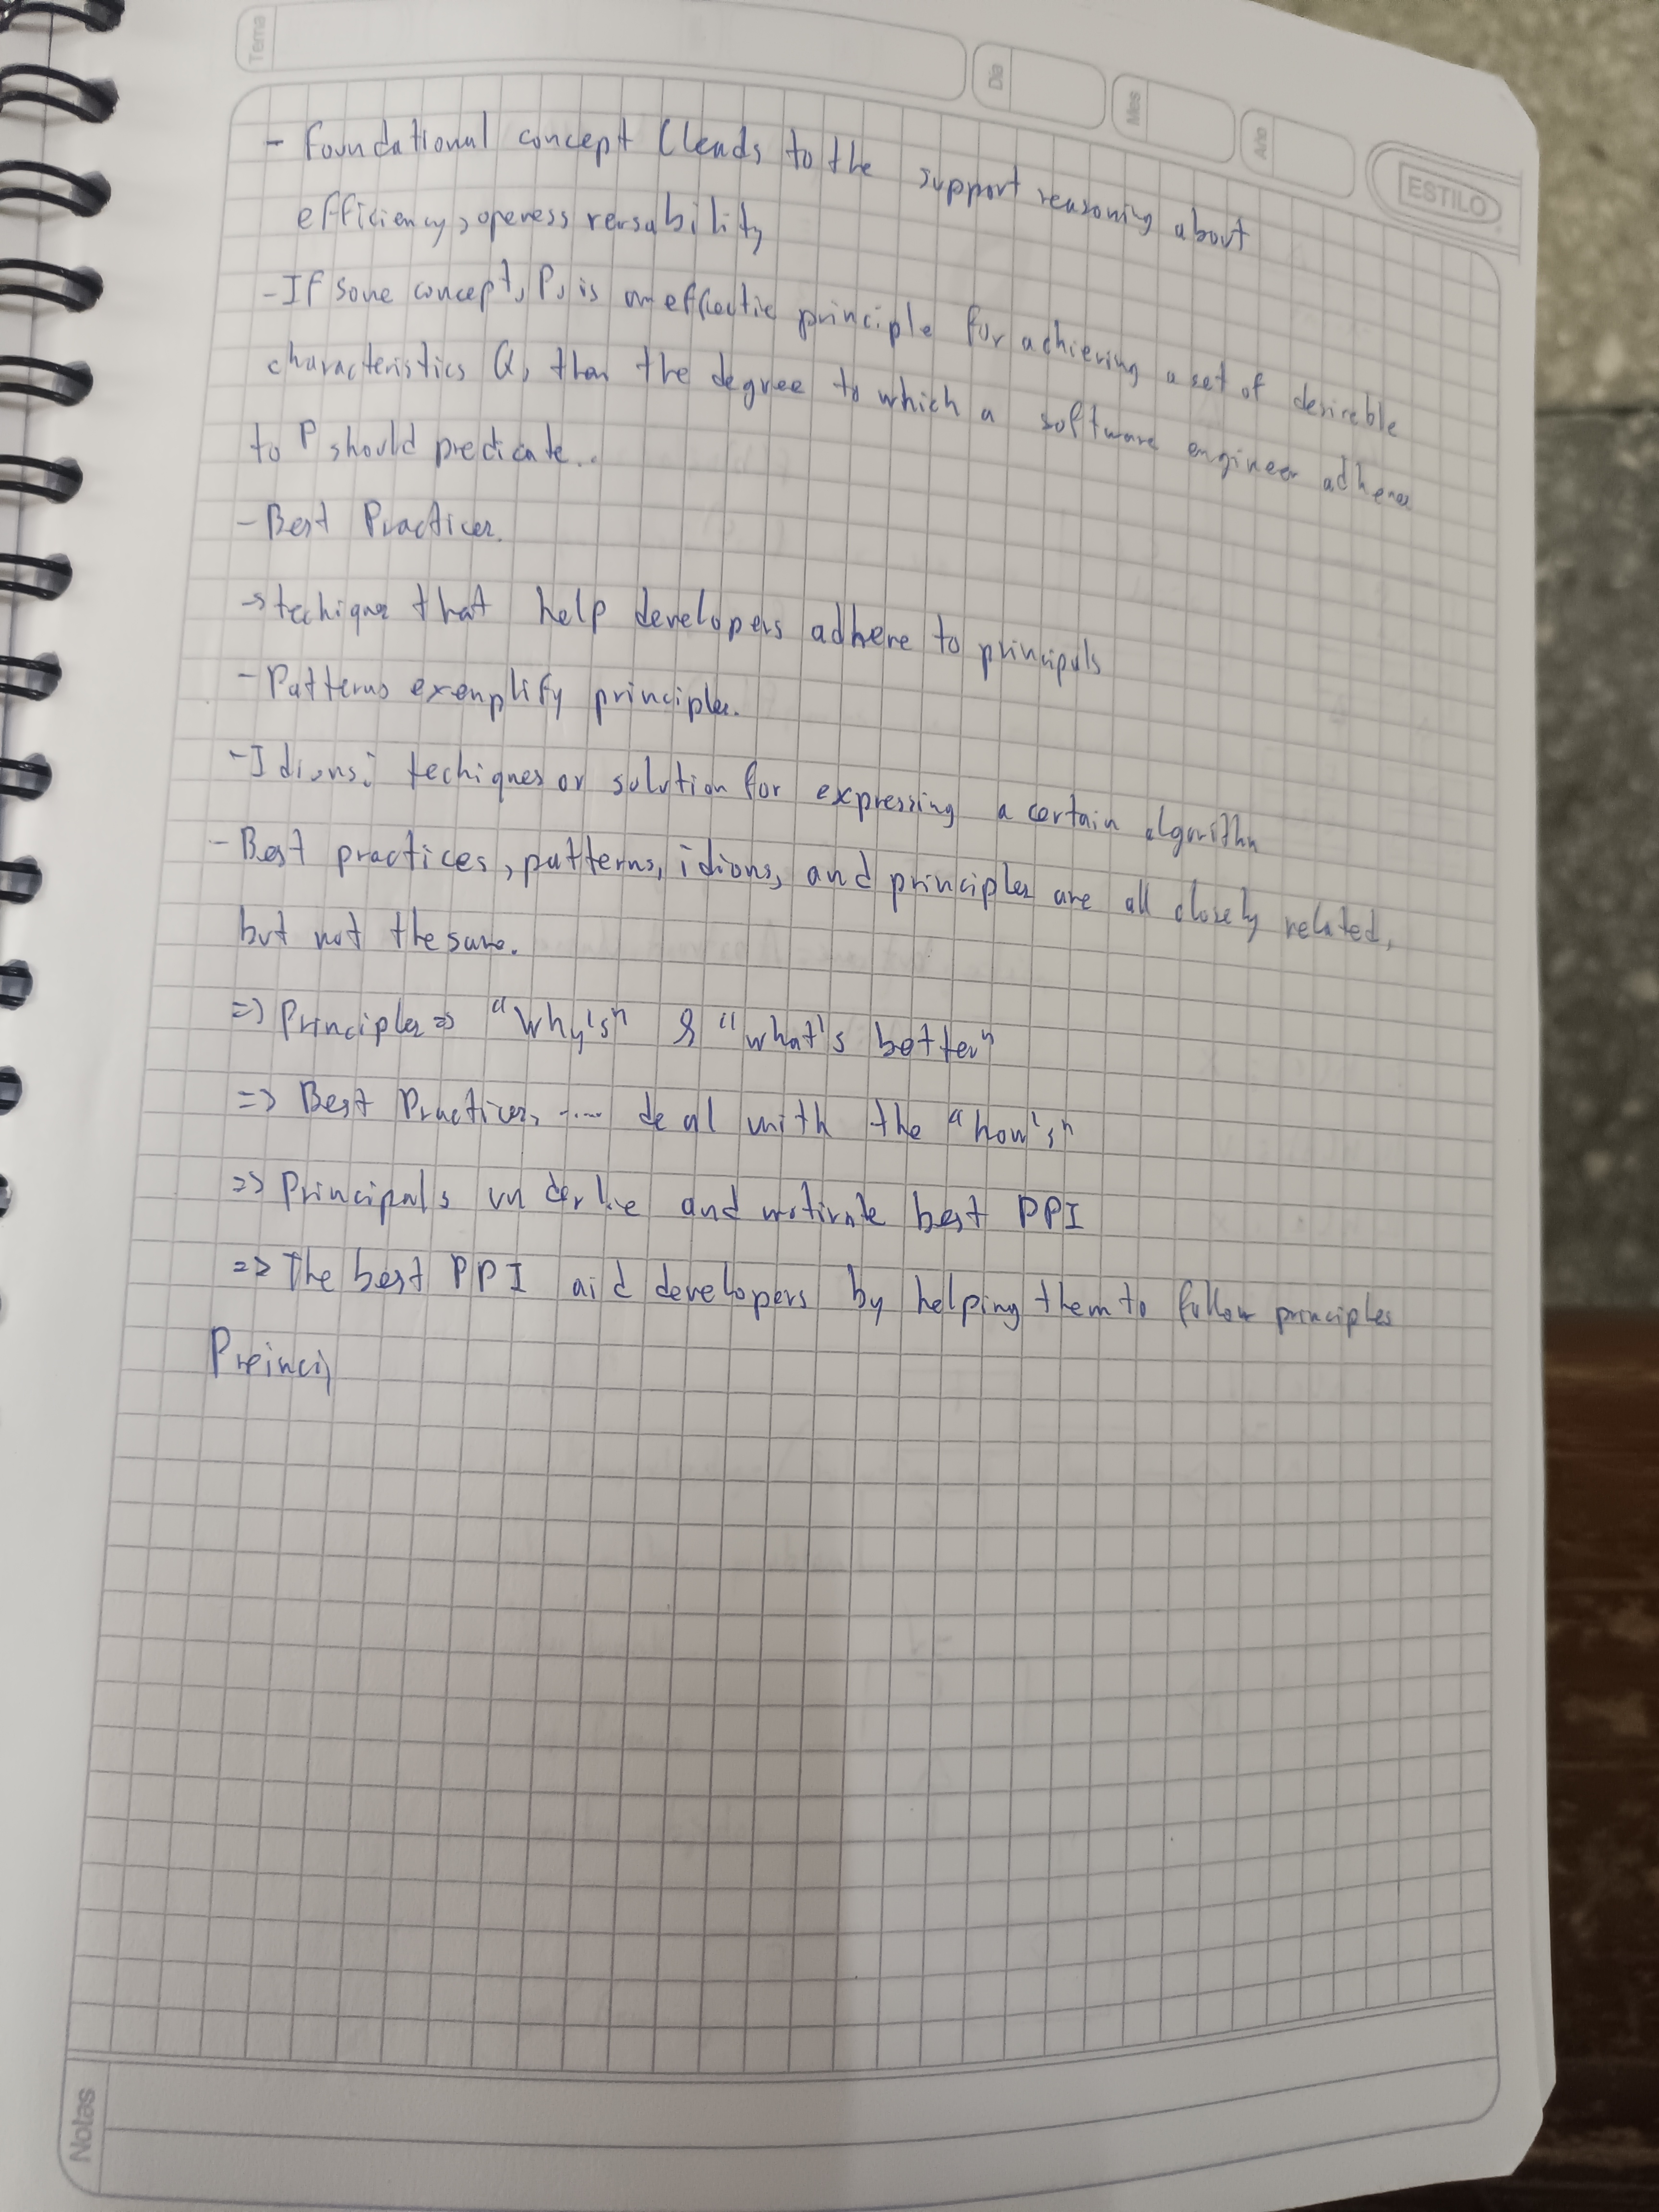 Tema
Dia
Mes
Año
ESTILO
- Foundational concept (leads to the support reasoning about
efficiency, openess reusability
- If some concept, P, is an effectie principle for achieving a set of desireble
characteristics Q, then the degree to which a software engineer adheres
to P should predicate..
- Best Practices.
→ techiques that help developers adhere to principals
- Patterns exemplify principles.
- Idioms: techiques or solution for expressing a certain algorithm
- Best practices, patterns, idioms, and principles are all closely related,
but not the same.
=> Principles => "Why's" & "what's better"
=> Best Practices, .... deal with the "how's"
=> Principals underlie and motivate best PPI
=> The best PPI aid developers by helping them to follow principles
Preinci
Notas